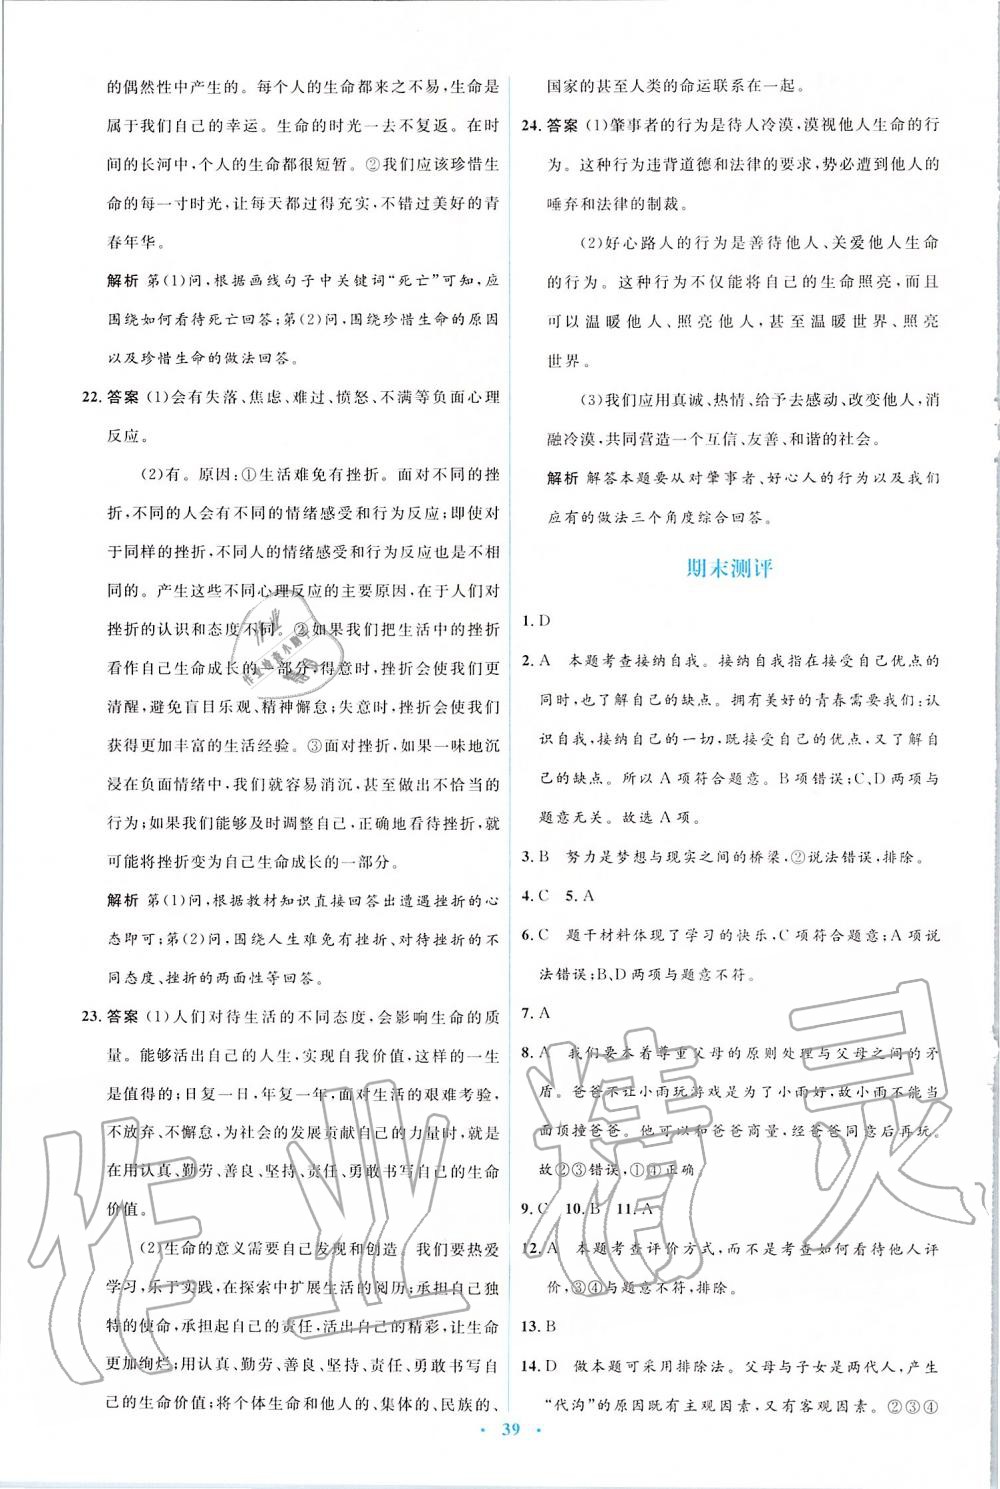 的偶然性中产生的。每个人的生命都来之不易,生命是
属于我们自己的幸运。生命的时光一去不复返。在时
间的长河中,个人的生命都很短暂。②我们应该珍惜生
命的每一寸时光,让每天都过得充实,不错过美好的青
春年华。
解析 第(1)问,根据画线句子中关键词“死亡”可知,应
围绕如何看待死亡回答;第(2)问,围绕珍惜生命的原因
以及珍惜生命的做法回答。
22. 答案 (1)会有失落、焦虑、难过、愤怒、不满等负面心理
反应。
(2)有。原因:①生活难免有挫折。面对不同的挫
折,不同的人会有不同的情绪感受和行为反应;即使对
于同样的挫折,不同人的情绪感受和行为反应也是不相
同的。产生这些不同心理反应的主要原因在于人们对
挫折的认识和态度不同。②如果我们把生活中的挫折
看作自己生命成长的一部分,得意时,挫折会使我们更
清醒,避免盲目乐观、精神懈怠;失意时,挫折会使我们
获得更加丰富的生活经验。③面对挫折,如果一味地沉
浸在负面情绪中,我们就容易消沉,甚至做出不恰当的
行为;如果我们能够及时调整自己,正确地看待挫折,就
可能将挫折变为自己生命成长的一部分。
解析 第(1)问,根据教材知识直接回答出遭遇挫折的心
态即可;第(2)问,围绕人生难免有挫折、对待挫折的不
同态度、挫折的两面性等回答。
23. 答案 (1)人们对待生活的不同态度,会影响生命的质
量。能够活出自己的人生,实现自我价值,这样的一生
是值得的;日复一日,年复一年,面对生活的艰难考验,
不放弃、不懈怠,为社会的发展贡献自己的力量时,就是
在用认真、勤劳、善良、坚持、责任、勇敢书写自己的生命
价值。
(2)生命的意义需要自己发现和创造 我们要热爱
学习,乐于实践,在探索中扩展生活的阅历;承担自己独
特的使命,承担起自己的责任,活出自己的精彩,让生命
更加绚烂;用认真、勤劳、善良、坚持、责任、勇敢书写自
己的生命价值;将个体生命和他人的、集体的、民族的、
国家的甚至人类的命运联系在一起。
24. 答案 (1)肇事者的行为是待人冷漠,漠视他人生命的行
为。这种行为违背道德和法律的要求,势必遭到他人的
唾弃和法律的制裁。
(2)好心路人的行为是善待他人、关爱他人生命
的行为。这种行为不仅能将自己的生命照亮,而且
可以温暖他人、照亮他人,甚至温暖世界、照亮
世界。
(3)我们应用真诚、热情、给予去感动、改变他人,消
融冷漠,共同营造一个互信、友善、和谐的社会。
解析 解答本题要从对肇事者、好心人的行为以及我们
应有的做法三个角度综合回答。
期末测评
1. D
2. A 本题考查接纳自我。接纳自我指在接受自己优点的
同时,也了解自己的缺点。拥有美好的青春需要我们:认
识自我,接纳自己的一切,既接受自己的优点,又了解自
己的缺点。所以A项符合题意。B项错误;C、D两项与
题意无关。故选A项。
3. B 努力是梦想与现实之间的桥梁,②说法错误,排除。
4. C 5. A
6. C 题干材料体现了学习的快乐,C项符合题意;A项说
法错误;B、D两项与题意不符。
7. A
8. A 我们要本着尊重父母的原则处理与父母之间的矛
盾。爸爸不让小雨玩游戏是为了小雨好,故小雨不能当
面顶撞爸爸。他可以和爸爸商量,经爸爸同意后再玩。
故②③错误,①④正确。
9. C 10. B 11. A
12. A 本题考查评价方式,而不是考查如何看待他人评
价,③④与题意不符,排除。
13. B
14. D 做本题可采用排除法。父母与子女是两代人,产生
“代沟”的原因既有主观因素,又有客观因素。②③④
· 39 ·
作业精灵